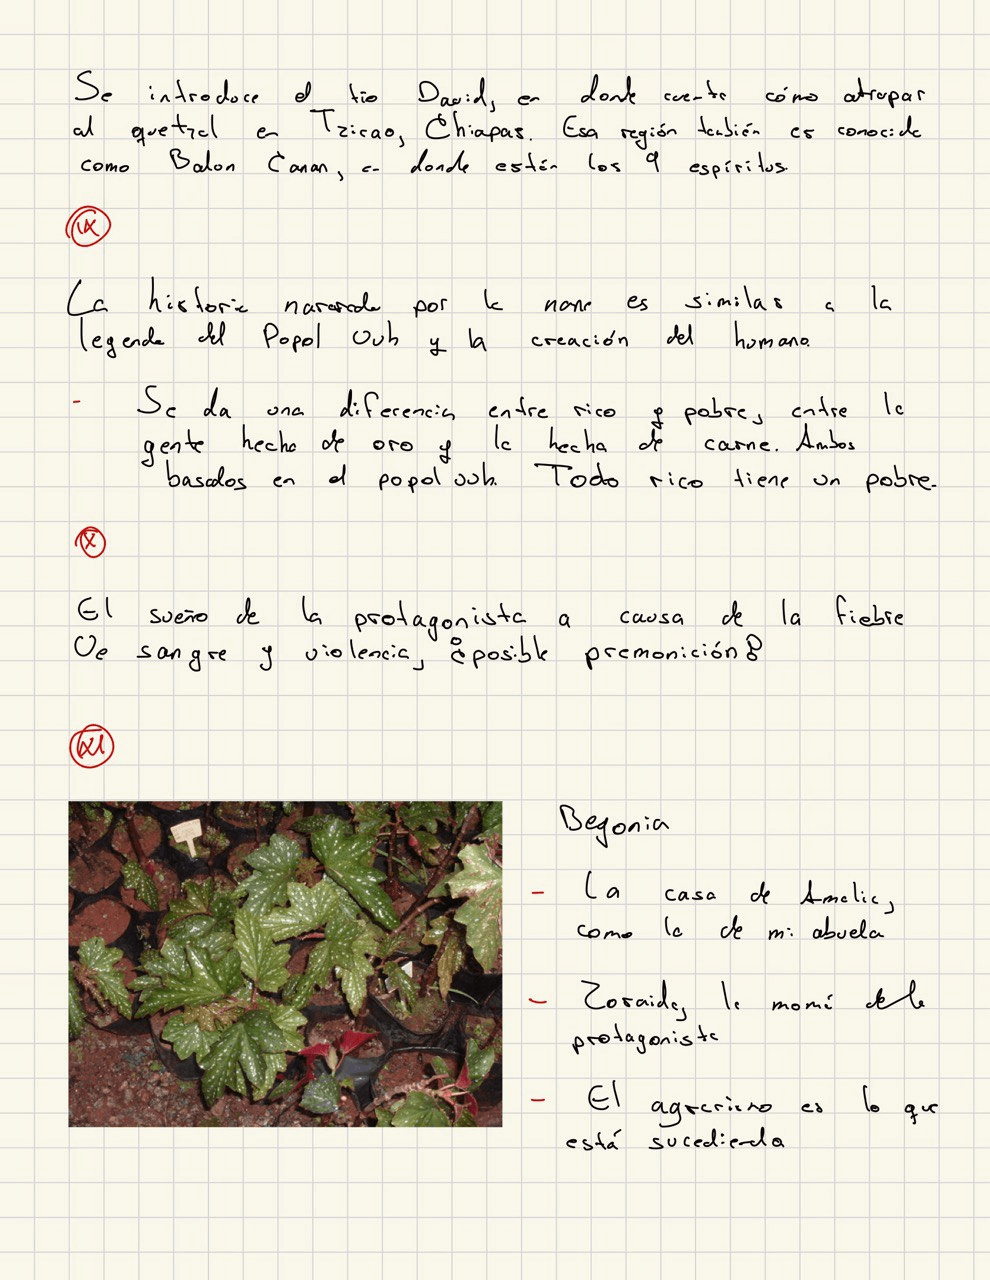 Se introduce el tío David, en donde cuenta cómo atrapar
al quetzal en Tzicao, Chiapas. Esa región también es conocida
como Balon Canan, en donde están los 9 espíritus.
IX
La historia nararada por la nana es similas a la
legenda del Popol Vuh y la creación del humano.
- Se da una diferencia entre rico y pobre, entre la
gente hecha de oro y la hecha de carne. Ambos
basados en el popol vuh. Todo rico tiene un pobre.
X
El sueño de la protagonista a causa de la fiebre
Ve sangre y violencia, ¿posible premonición?
XI
Begonia
- La casa de Amalia,
como la de mi abuela
- Zoraida, la mamá de la
protagonista
- El agrarismo es lo que
está sucediendo